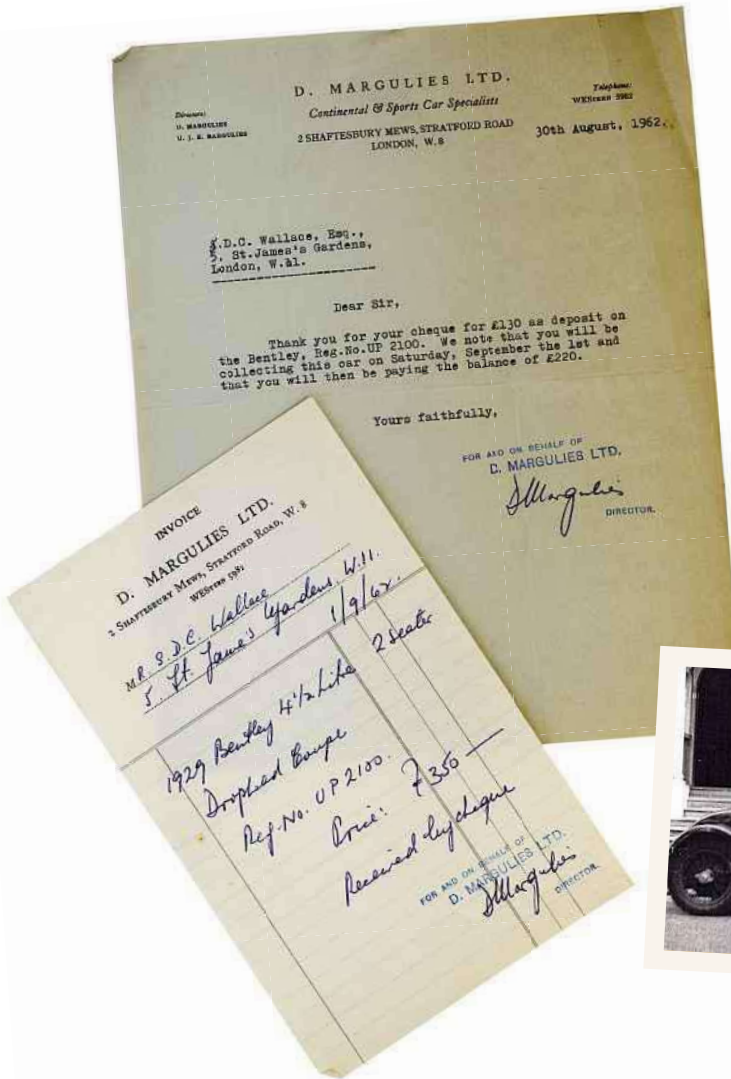 D. MARGULIES LTD.
Continental & Sports Car Specialists
2 SHAFTESBURY MEWS, STRATFORD ROAD
LONDON, W.8
Directors:
D. MARGULIES
U. J. E. MARGULIES
Telephone:
WEStern
30th August, 1962.
S.D.C. Wallace, Esq.,
5, St.James's Gardens,
London,
Dear Sir,
Thank you for your cheque for £130 as deposit on
the Bentley, Reg.No.UP 2100. We note that you will be
collecting this car on Saturday, September the 1st and
that you will then be paying the balance of £220.
Yours faithfully,
FOR AND ON BEHALF OF
D. MARGULIES LTD.
DMargulies
DIRECTOR.
INVOICE
D. MARGULIES LTD.
2 SHAFTESBURY MEWS, STRATFORD ROAD, W.8
WEStern
MR. S.D.C. Wallace
5. St. Jame's Gardens. W.11.
1/9/62.
1929 Bentley 4½ Litre 2 Seater
Drophead Coupe
Reg. No. UP 2100.
Price: £350 —
Received by cheque
FOR AND ON BEHALF OF
D. MARGULIES LTD.
DMargulies
DIRECTOR.